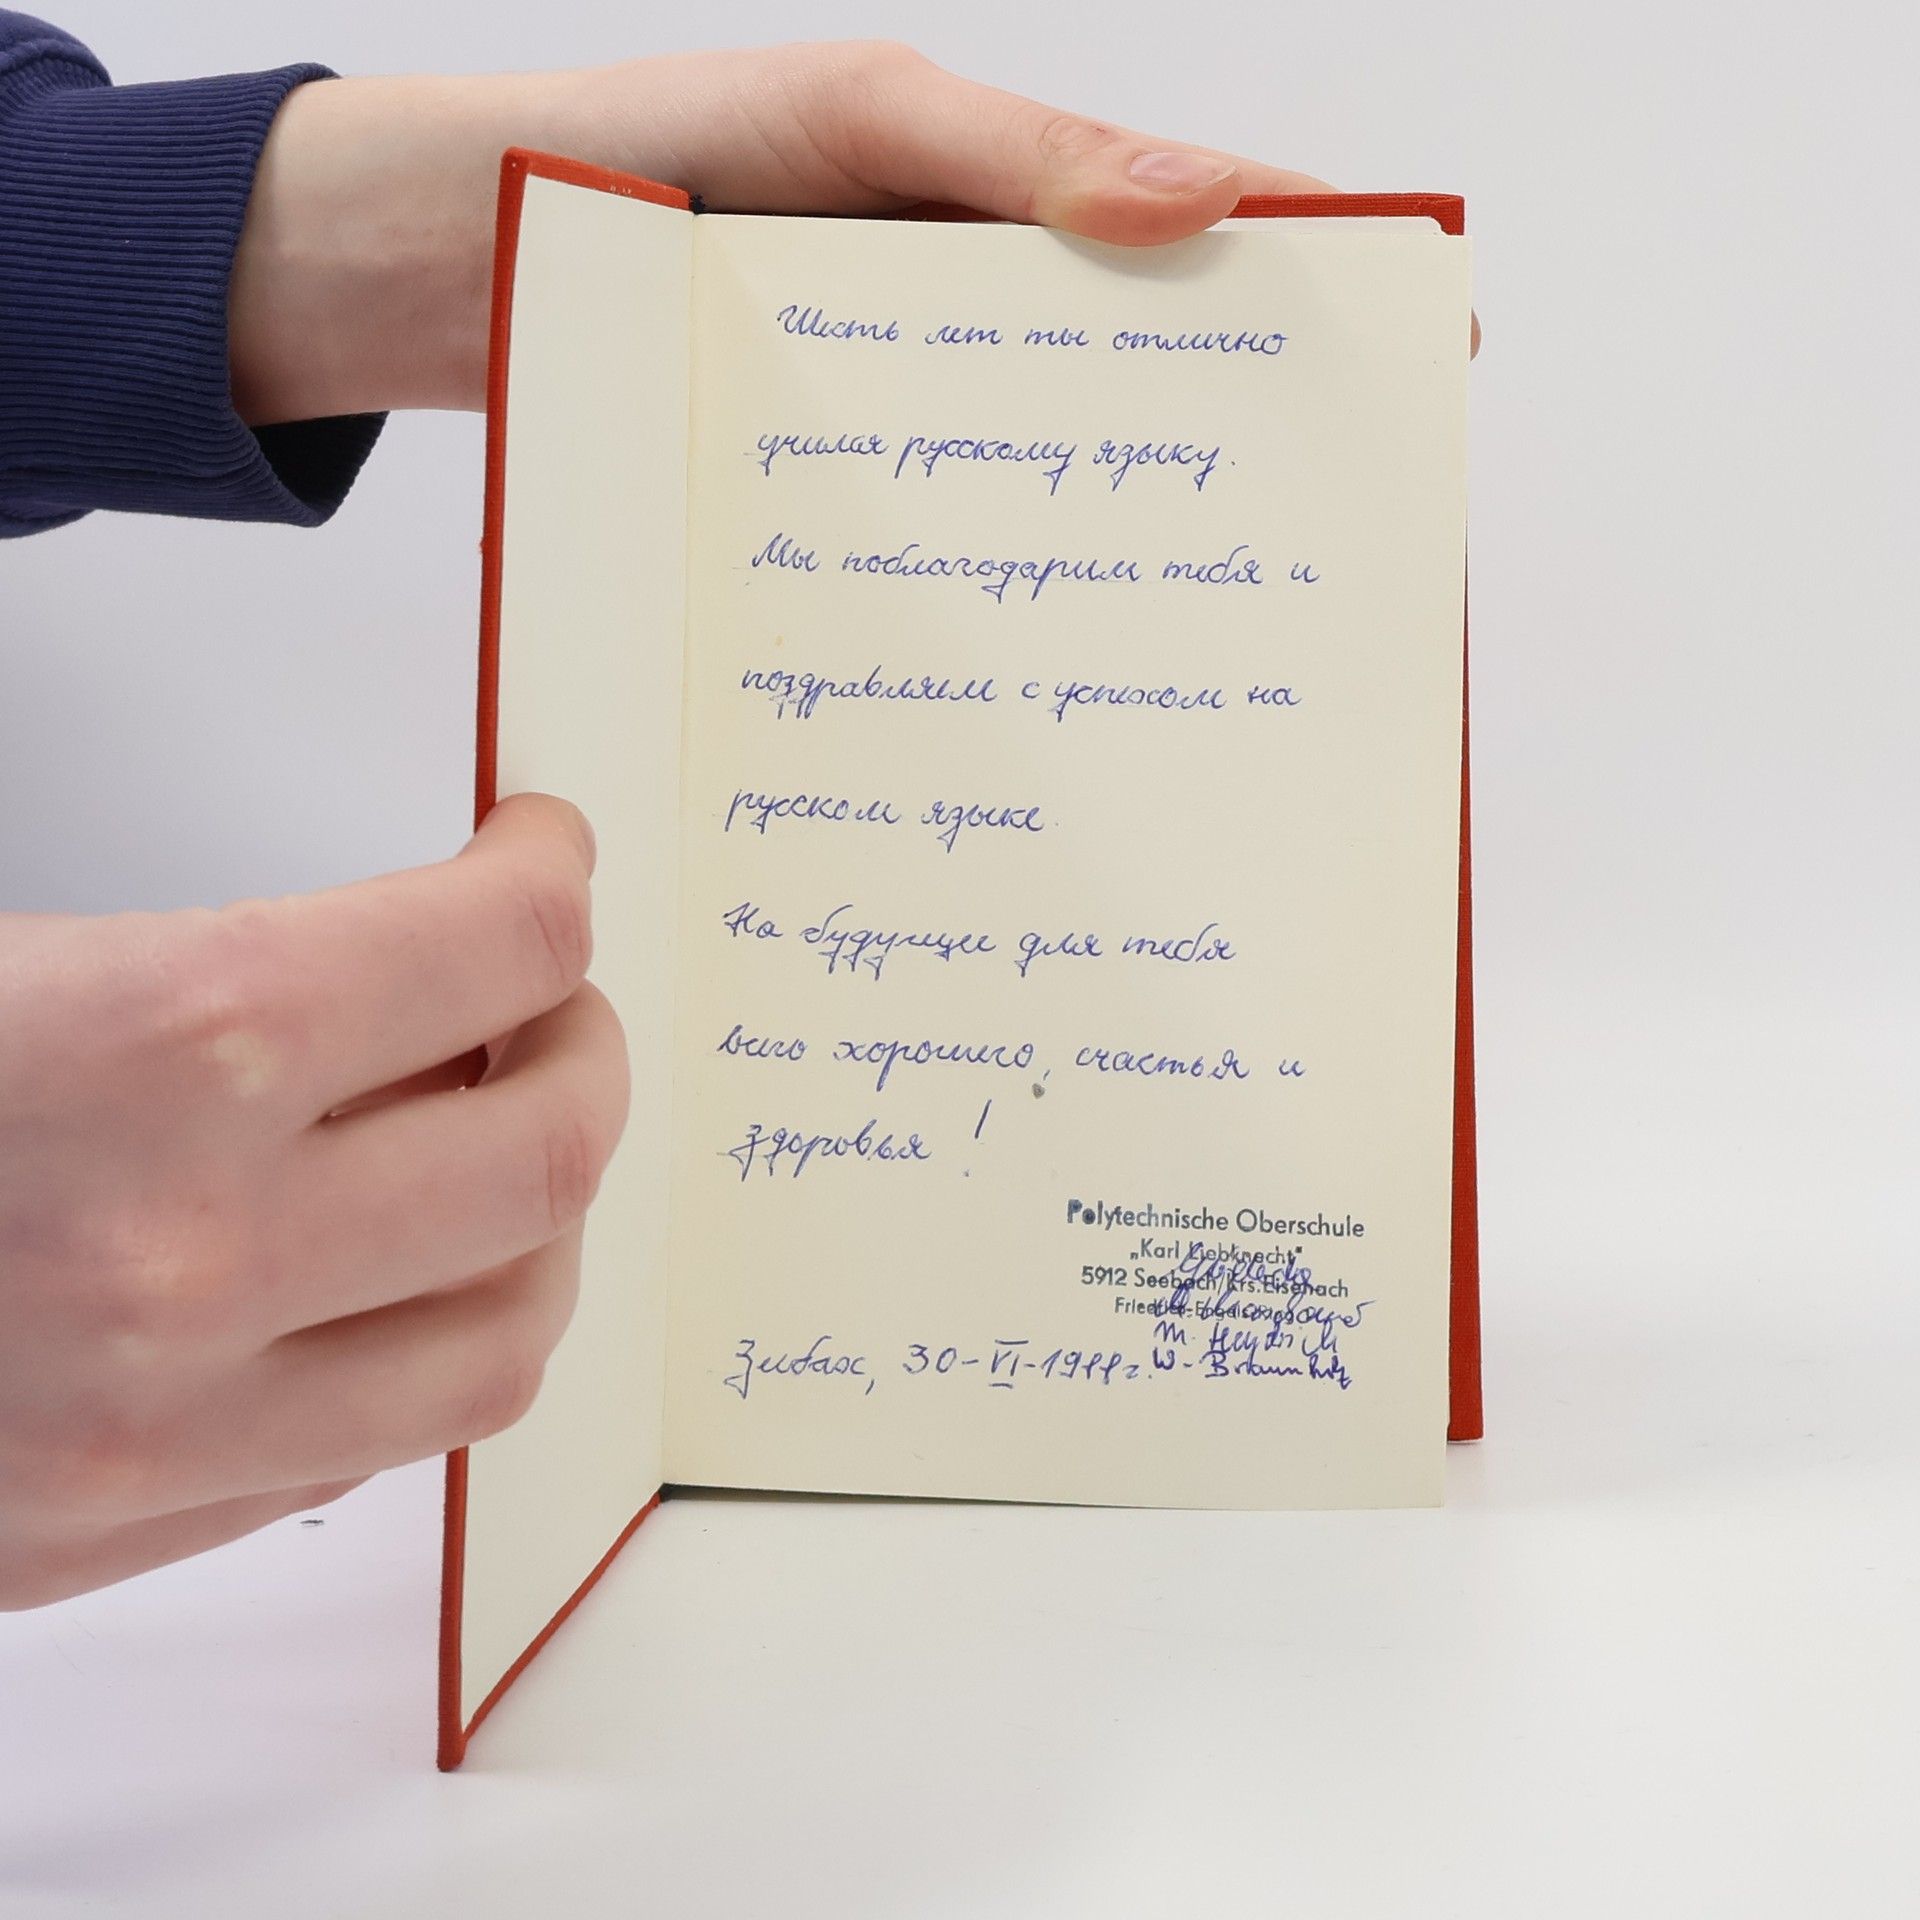 Шесть лет ты отлично
училая русскому языку.
Мы поблагодарим тебя и
поздравляем с успехом на
русском языке.
На будущее для тебя
всего хорошего, счастья и
здоровья !
Polytechnische Oberschule
„Karl Liebknecht"
5912 Seebach/Krs. Eisenach
Friedrich-Engels-Ring
M. Heydrich
Зибах, 30-VI-1988г. W.